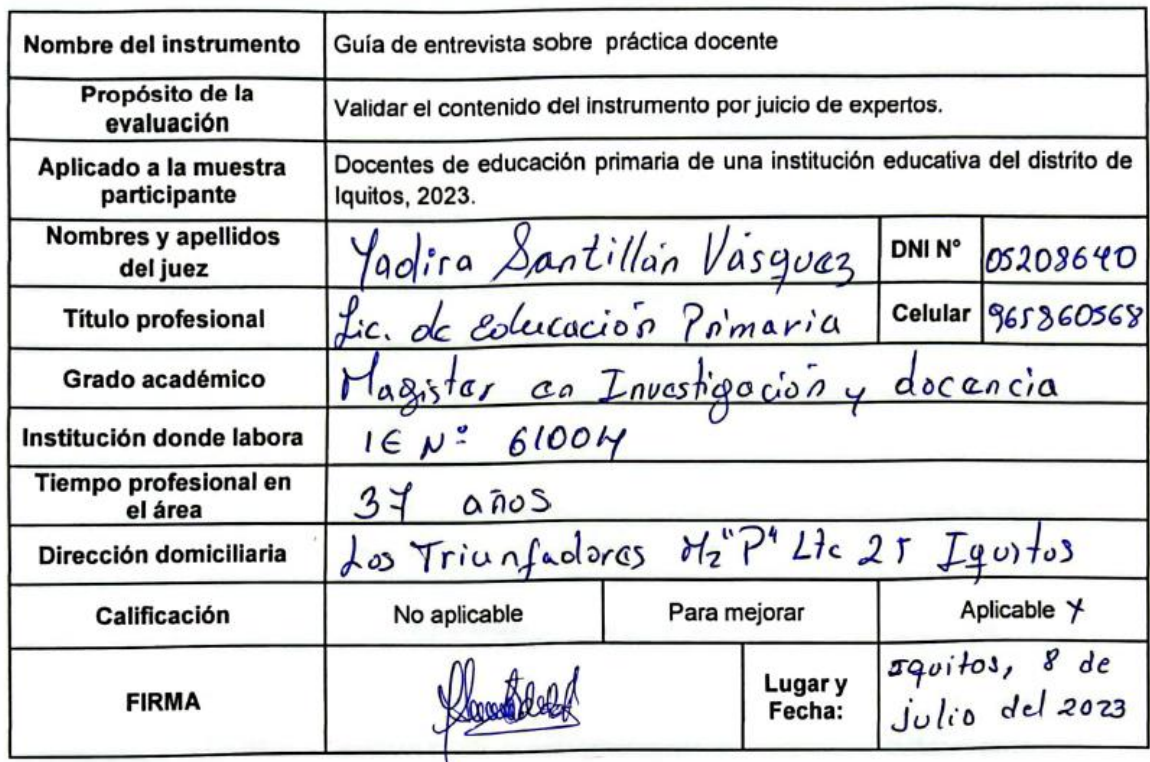 Nombre del instrumento
Guía de entrevista sobre práctica docente
Propósito de la
evaluación
Validar el contenido del instrumento por juicio de expertos.
Aplicado a la muestra
participante
Docentes de educación primaria de una institución educativa del distrito de
Iquitos, 2023.
Nombres y apellidos
del juez
Yadira Santillán Vásquez
DNI N°
05208640
Título profesional
Lic. de Educación Primaria
Celular
965860568
Grado académico
Magister en Investigación y docencia
Institución donde labora
IE Nº 61004
Tiempo profesional en
el área
37 años
Dirección domiciliaria
Los Triunfadores Mz "P" Lte 25 Iquitos
Calificación
No aplicable
Para mejorar
Aplicable X
FIRMA
Lugar y
Fecha:
Iquitos, 8 de
julio del 2023